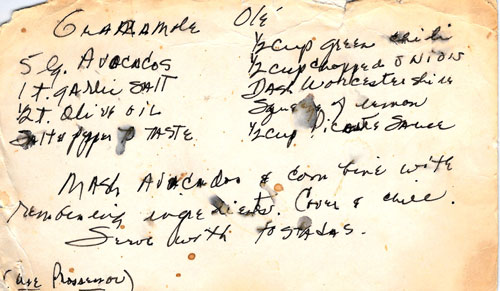 Guacamole Olé
5 lg. Avocados
1 t. garlic salt
½ t. Olive oil
Salt & pepper to taste
½ cup green chili
½ cup chopped onion
Dash Worcestershire
Squeeze of lemon
½ cup Picante Sauce
Mash Avocados & combine with
remaining ingredients. Cover & chill.
Serve with tostadas.
(use Processor)